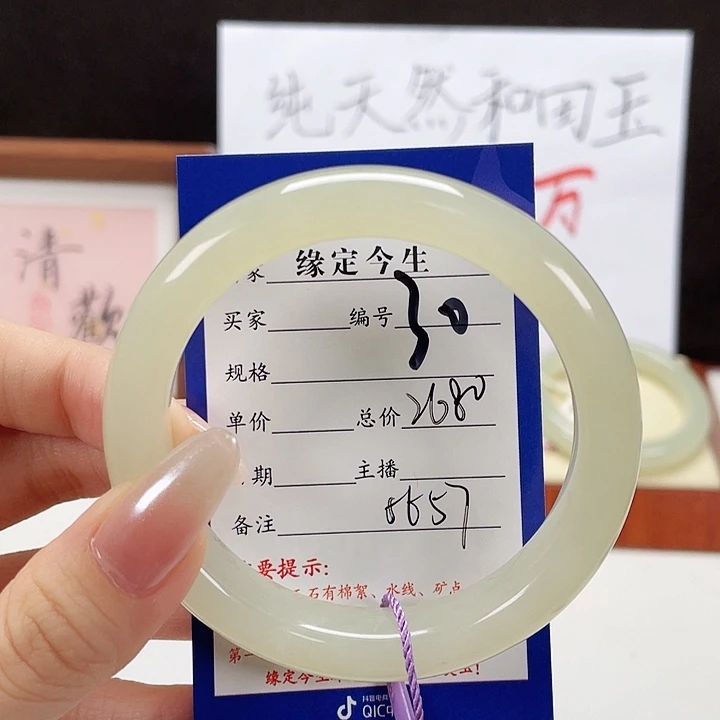 纯天然和田玉
万
清
歡
家 缘定今生
买家 编号 30
规格
单价 总价 2680
期 主播
备注 8657
要提示:
石有棉絮、水线、矿点
第一
缘定今生
抖音电商
QIC